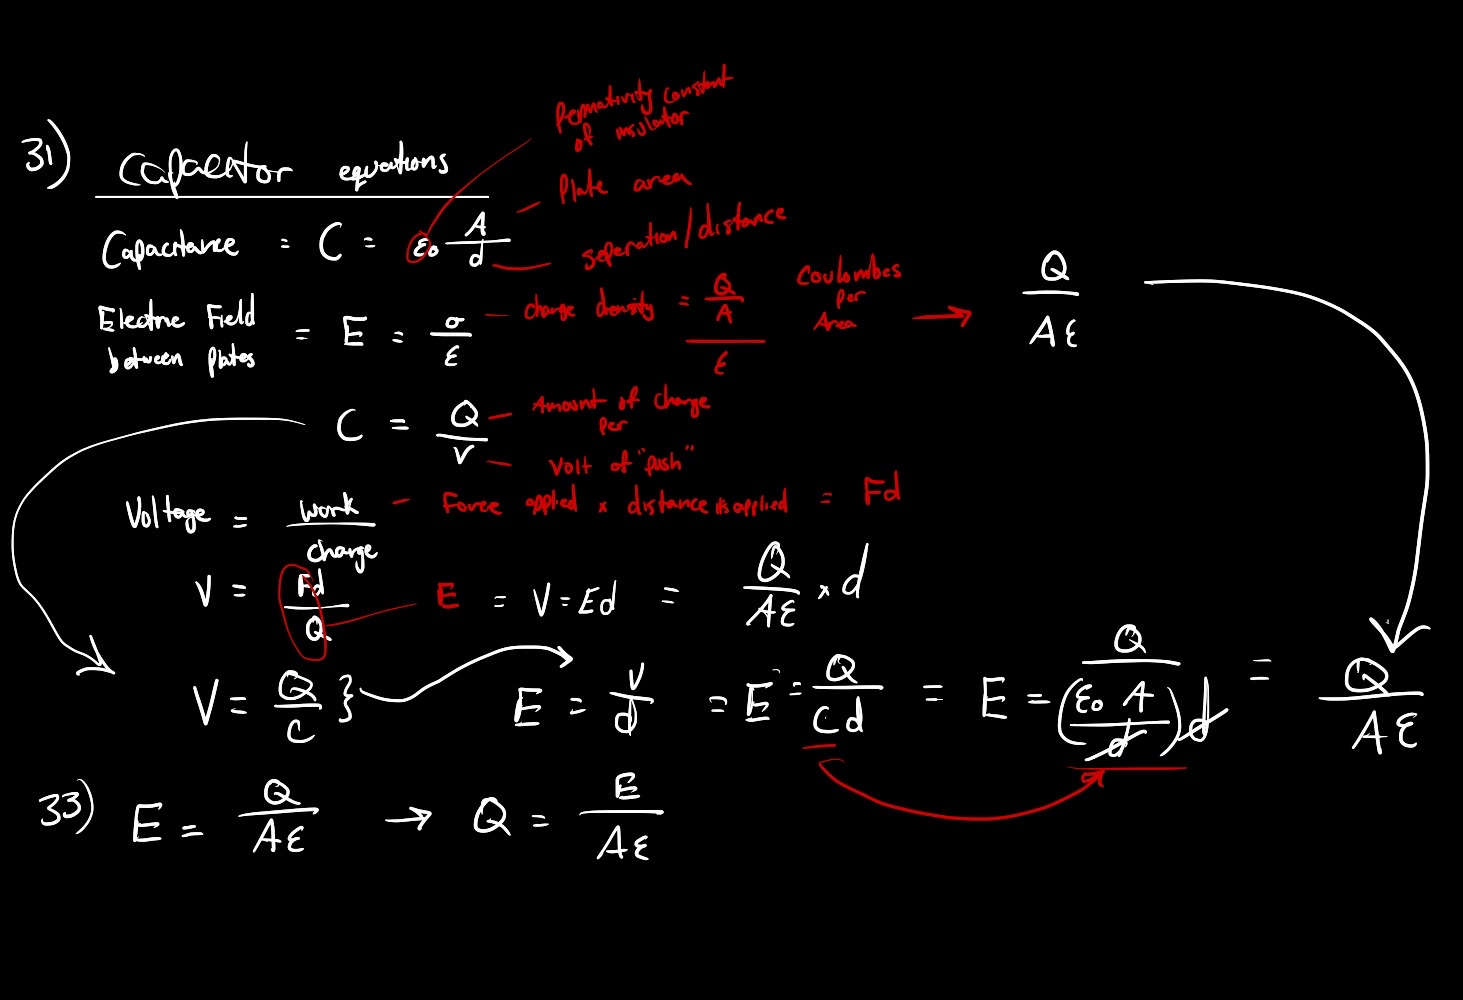 31) Capacitor equations
Permativity constant
of insulator
Capacitance = C = ε₀ A/d
Plate area
seperation/distance
Electric Field
between plates
= E = σ/ε
charge density = Q/A / ε
Coulombes
per
Area
→ Q/Aε
C = Q/V
Amount of charge
per
Volt of "push"
Voltage = work/charge
Force applied x distance its applied = Fd
V = Fd/Q
E = V=Ed = Q/Aε x d
V = Q/C } E = V/d = E = Q/Cd = E = Q/(ε₀ A/d)d = Q/Aε
33) E = Q/Aε → Q = E/Aε